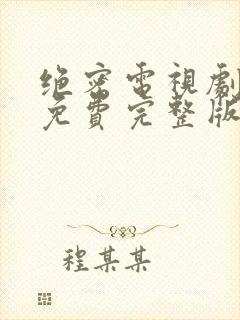 绝密電視劇
免費完整版
程某某